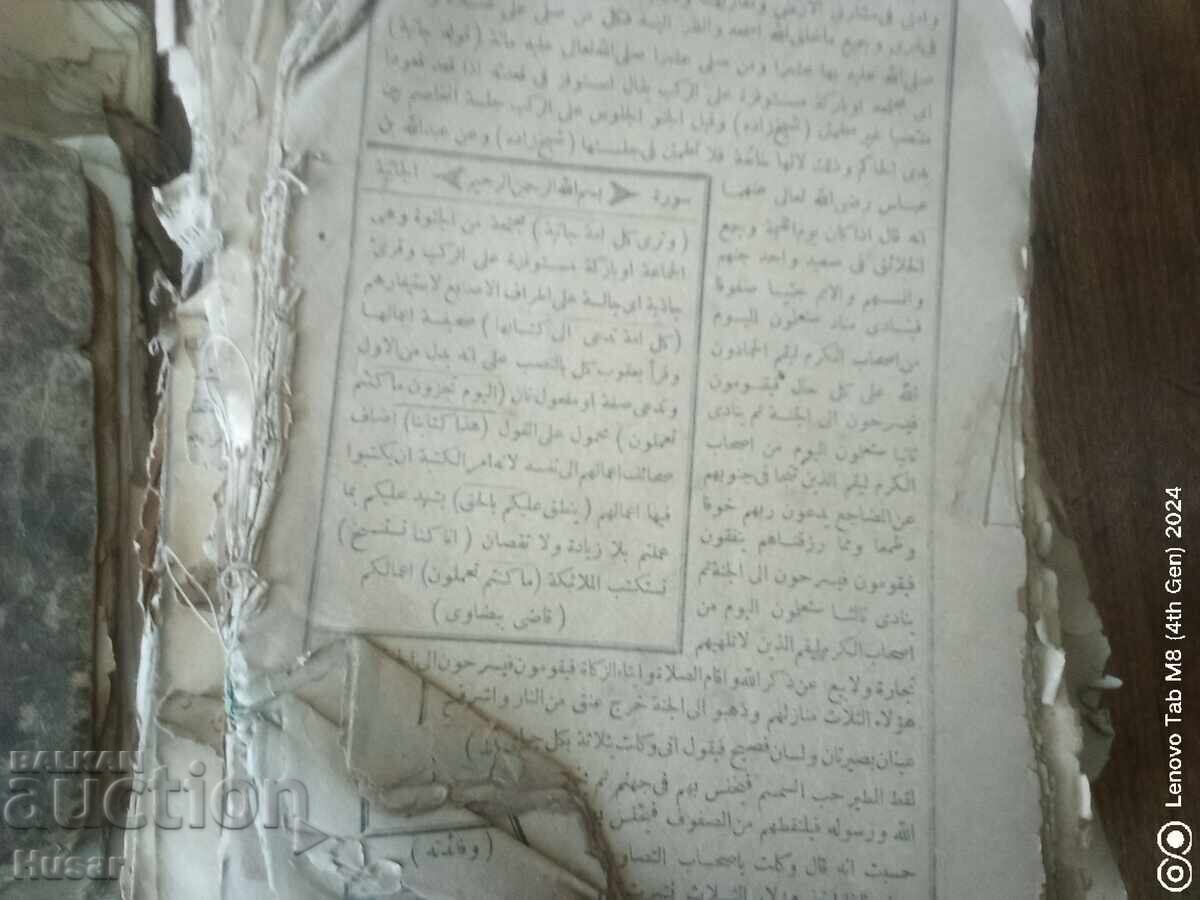 صلى الله عليه بها عشرا ومن صلى على عشرا صلى الله تعالى عليه مائة (قوله جاثية)
اى مجتمعة او باركة مستوفزة على الركب يقال استوفز فى قعدته اذا قعد قعودا
منتصبا غير مطمئن (شيخ زاده) وقيل الجثو الجلوس على الركب جلسة المخاصم بين
يدى الحاكم وذلك لانها خائفة فلا تطمئن فى جلستها (شيخ زاده) وعن عبد الله بن
عباس رضى الله تعالى عنهما
انه قال اذا كان يوم القيمة وجمع
الخلائق فى صعيد واحد جنهم
وانسهم والامم جثيا صفوفا
فينادى مناد ستعلمون اليوم
من اصحاب الكرم ليقم الحمادون
لله على كل حال فيقومون
فيسرحون الى الجنة ثم ينادى
ثانيا ستعلمون اليوم من اصحاب
الكرم ليقم الذين تتجافى جنوبهم
عن المضاجع يدعون ربهم خوفا
وطمعا ومما رزقناهم ينفقون
فيقومون فيسرحون الى الجنة ثم
ينادى ثالثا ستعلمون اليوم من
اصحاب الكرم ليقم الذين لا تلهيهم
سورة بسم الله الرحمن الرحيم الجاثية
(وترى كل امة جاثية) مجتمعة من الجثوة وهى
الجماعة او باركة مستوفزة على الركب وقرئ
جاذية اى جالسة على اطراف الاصابع لاستيفازهم
(كل امة تدعى الى كتابها) صحيفة اعمالها
وقرأ يعقوب كل بالنصب على انه بدل من الاول
وتدعى صفة او مفعول ثان (اليوم تجزون ما كنتم
تعملون) محمول على القول (هذا كتابنا) اضاف
صحائف اعمالهم الى نفسه لانه امر الكتبة ان يكتبوا
فيها اعمالهم (ينطق عليكم بالحق) يشهد عليكم بما
عملتم بلا زيادة ولا نقصان (انا كنا نستنسخ)
نستكتب الملائكة (ما كنتم تعملون) اعمالكم
(قاضى بيضاوى)
تجارة ولا بيع عن ذكر الله واقام الصلاة وايتاء الزكاة فيقومون فيسرحون الى
هؤلاء الثلاث منازلهم وذهبوا الى الجنة خرج عنق من النار واشرف
عينان بصيرتان ولسان فصيح فيقول انى وكلت بثلاثة بكل جبار
لقط الطير حب السمسم فتخنس بهم فى جهنم ثم
الله ورسوله فيلتقطهم من الصفوف
حسبت انه قال وكلت باصحاب التصاوير
BALKAN
auction
Husar
Lenovo Tab M8 (4th Gen) 2024